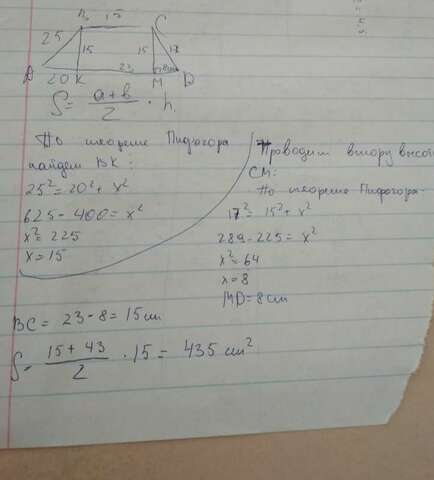 B 15 C
25 15 15 17
A 20 K 23 M 8см D
S = a+b/2 · h.
По теореме Пифагора
найдем BK:
25² = 20² + x²
625 - 400 = x²
x² = 225
x = 15
Проводим втору высот
CM:
По теореме Пифагора
17² = 15² + x²
289 - 225 = x²
x² = 64
x = 8
MD = 8 см
BC = 23 - 8 = 15 см
S = 15 + 43/2 · 15 = 435 см²